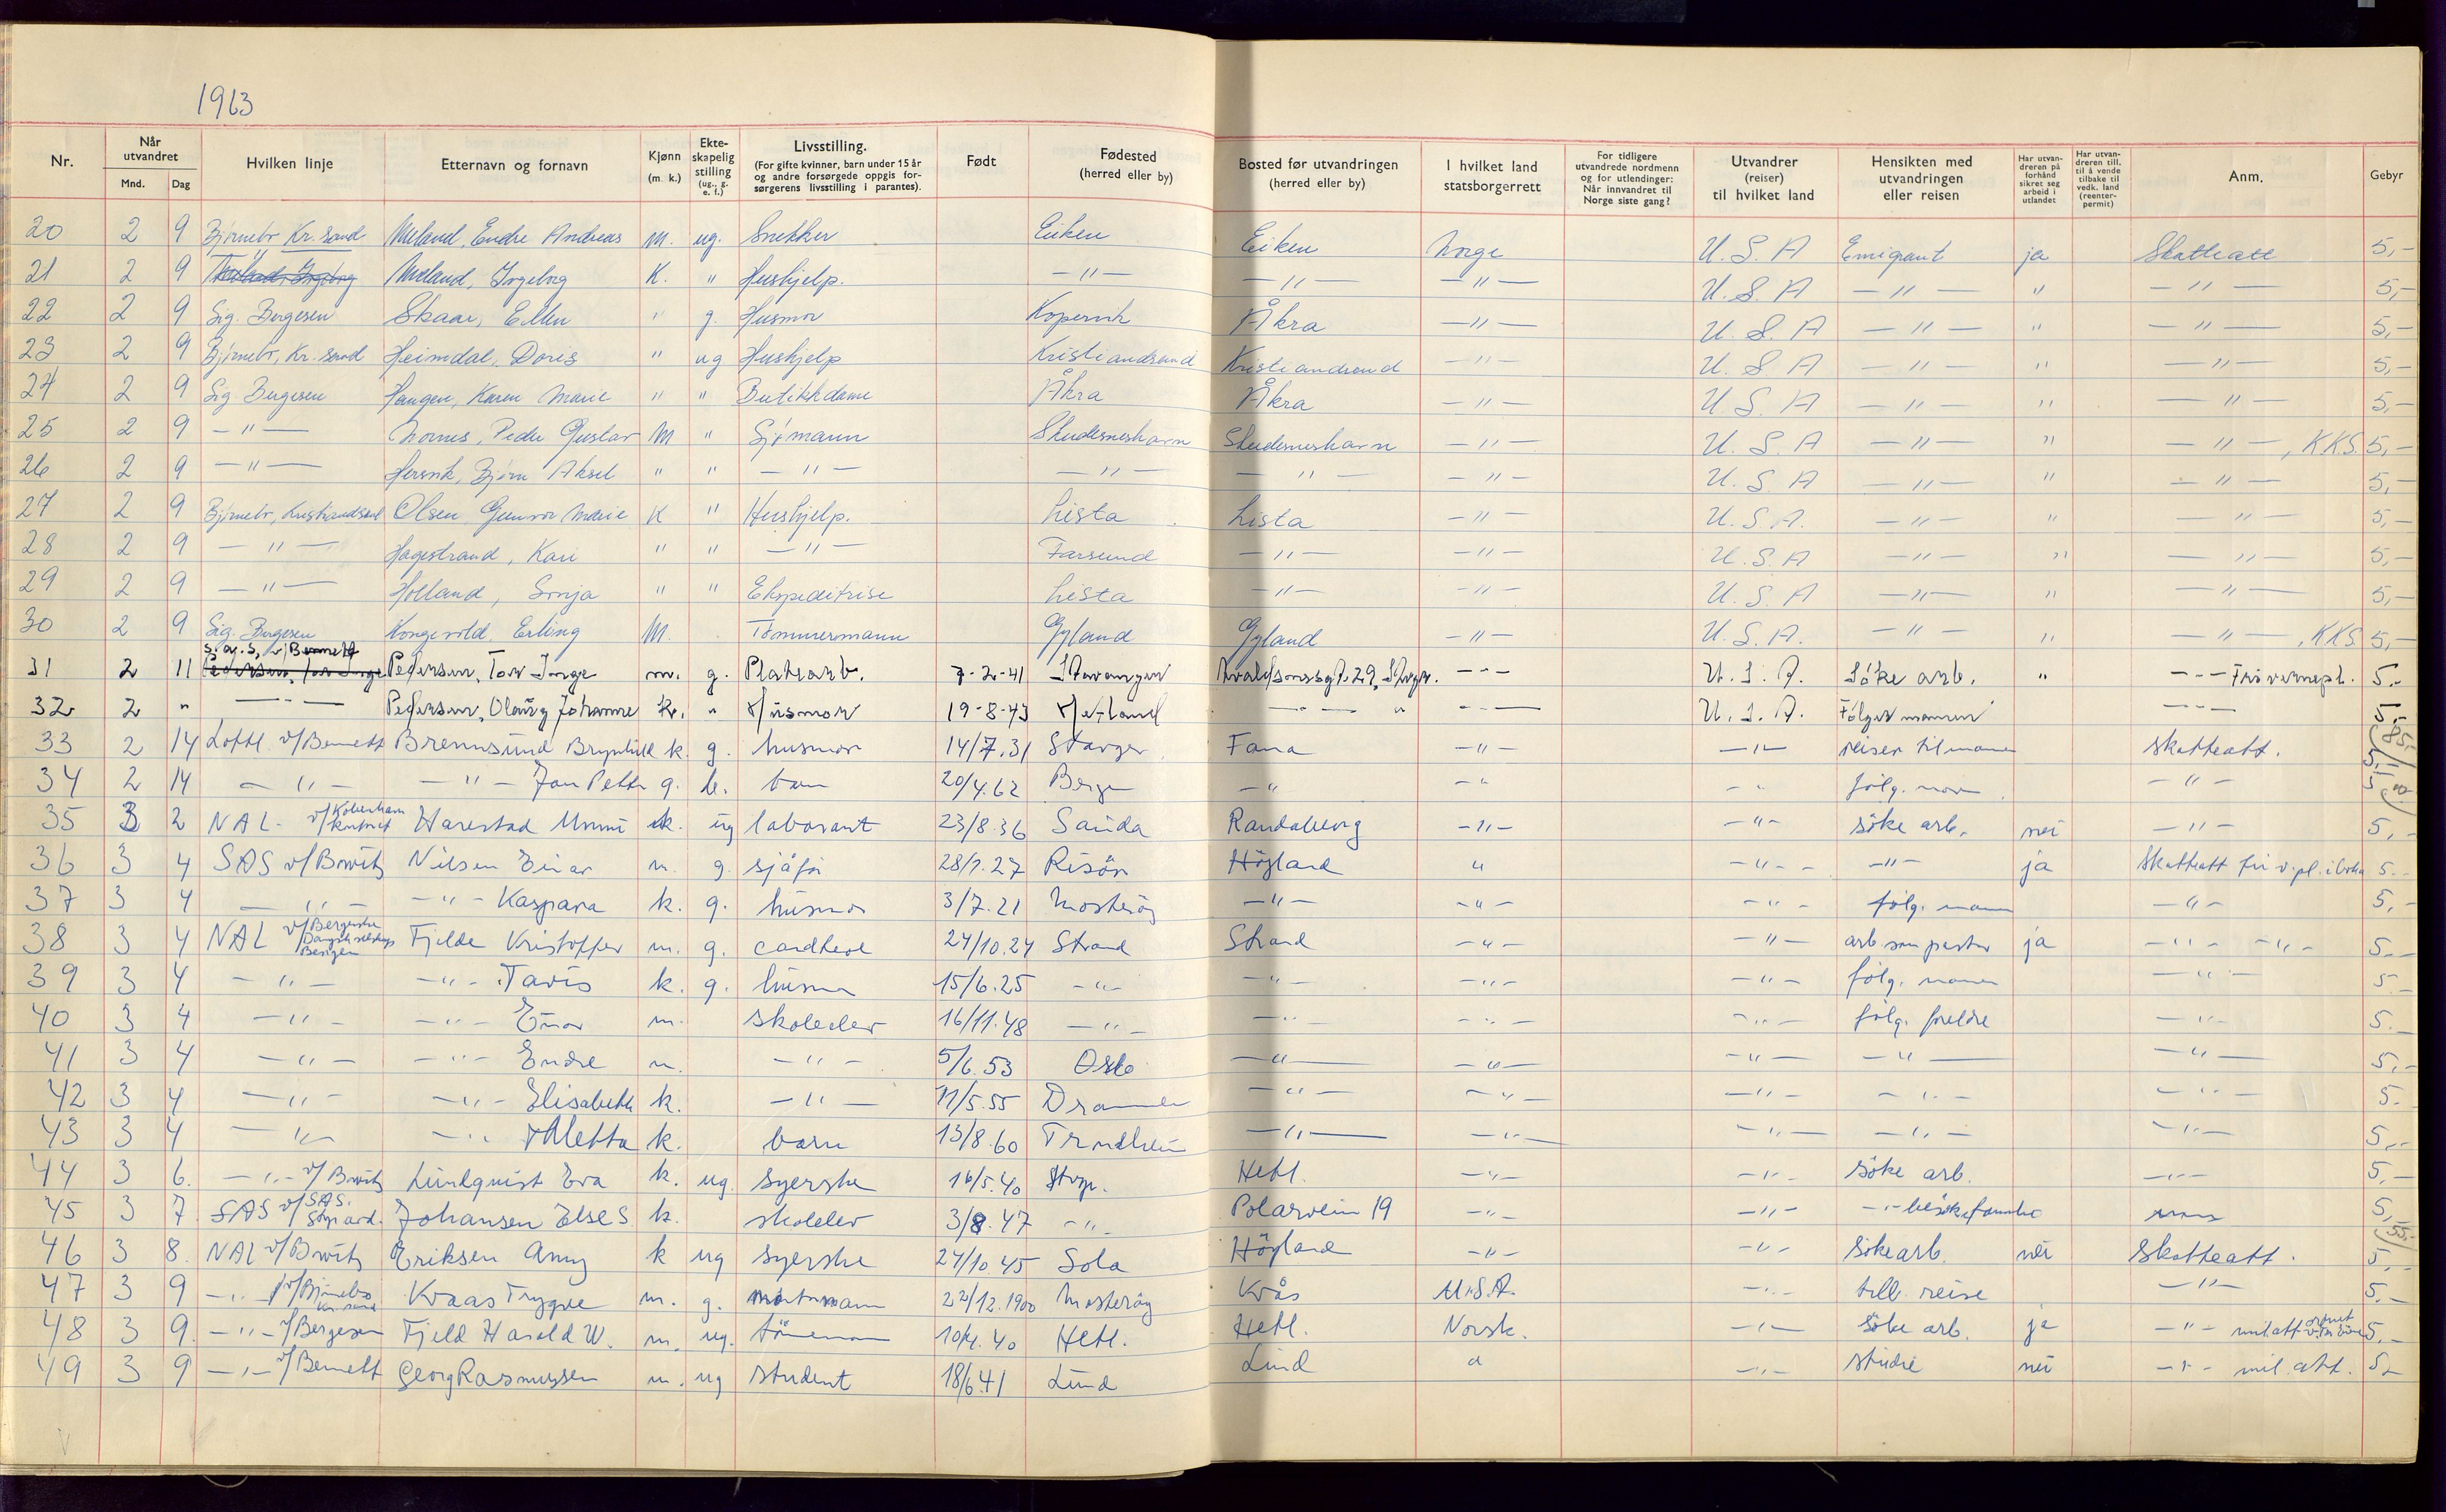 1963
Nr. Når utvandret Mnd. Dag Hvilken linje Etternavn og fornavn Kjønn (m. k.) Ekteskapelig stilling (ug., g. e. f.) Livsstilling. (For gifte kvinner, barn under 15 år og andre forsørgede oppgis forsørgerens livsstilling i parantes). Født Fødested (herred eller by) Bosted før utvandringen (herred eller by) I hvilket land statsborgerrett For tidligere utvandrede nordmenn og for utlendinger: Når innvandret til Norge siste gang? Utvandrer (reiser) til hvilket land Hensikten med utvandringen eller reisen Har utvandreren på forhånd sikret seg arbeid i utlandet Har utvandreren till. til å vende tilbake til vedk. land (reenterpermit) Anm. Gebyr
20 2 9 Bjørnebr Kr.sand Meland, Endre Andreas M. ug. Snekker Eiken Eiken Norge U.S.A Emigrant ja Skatteatt 5,-
21 2 9 Meland, Ingeborg K. " Hushjelp. -"- -"- -"- U.S.A -"- " -"- 5,-
22 2 9 Sig. Bergesen Skaar, Ellen " g. Husmor Kopervik Åkra -"- U.S.A -"- " -"- 5,-
23 2 9 Bjørnebr, Kr.sand Heimdal, Doris " ug Hushjelp Kristiandsand Kristiandsand -"- U.S.A -"- " -"- 5,-
24 2 9 Sig Bergesen Haugen, Karen Marie " " Butikkdame Åkra Åkra -"- U.S.A -"- " -"- 5,-
25 2 9 -"- Peder Gustav M " Sjømann Skudeneshavn Skudeneshavn -"- U.S.A -"- " -"-, KKS. 5,-
26 2 9 -"- Bjørn Aksel " " -"- -"- -"- -"- U.S.A -"- " -"- 5,-
27 2 9 Bjørnebr, Kristiandsand Olsen Gunvor Marie K " Hushjelp. Lista Lista -"- U.S.A. -"- " -"- 5,-
28 2 9 -"- Hagestrand, Kari " " -"- Farsund -"- -"- U.S.A -"- " -"- 5,-
29 2 9 -"- Holland, Sonja " " Ekspeditrise Lista -"- -"- U.S.A -"- " -"- 5,-
30 2 9 Sig. Bergesen Kongevold, Erling M. Tømmermann Gyland Gyland -"- U.S.A. -"- " -"-, KKS 5,-
31 2 11 S.A.S, v/Bennett Pedersen, Tor Inge m. g. Platearb. 7-2-41 Stavanger 29, Stvgr. -"- U.S.A. Söke arb. " -"- 5.-
32 2 " -"- Pedersen, Olaug Johanne k. " Husmor 19-8-43 Hetland -"- " -"- U.S.A. Følger mannen -"- 5,-
33 2 14 Loftl. v/Bennett Brennsund Brynhild k. g. husmor 14/7.31 Stavger. Fana -"- -"- reiser til mann skatteatt. 5,-
34 2 14 -"- -"- Jan Petter g. k. barn 20/4.62 Bergen -"- -"- -"- følg. mor -"- 5,-
35 3 2 NAL- v/Kobenhavn kontoret Harestad Unni k. ug laborant 23/8.36 Sauda Randaberg -"- -"- söke arb. nei -"- 5,-
36 3 4 SAS v/Bowitz Nilsen Einar m. g. sjåfør 28/1.27 Risör Högland " -"- -"- ja 5.-
37 3 4 -"- -"- Kaspara k. g. husmor 3/7.21 Mosteröy -"- -"- -"- følg. mann -"- 5,-
38 3 4 NAL v/Bergenske Dampsk.selskap Bergen Fjelde Kristoffer m. g. 24/10.24 Strand Strand -"- -"- arb som pastor ja -"- -"- 5.-
39 3 4 -"- -"- k. g. husmor 15/6.25 -"- -"- -"- -"- følg. mannen -"- 5.-
40 3 4 -"- -"- Einar m. skoleelev 16/11.48 -"- -"- -"- -"- følg. foreldre -"- 5.-
41 3 4 -"- -"- Endre m. -"- 5/6.53 Oslo -"- -"- -"- -"- -"- 5,-
42 3 4 -"- -"- Elisabeth k. -"- 11/5.55 Drammen -"- -"- -"- -"- -"- 5.-
43 3 4 -"- -"- Metta k. barn 13/8.60 Trondheim -"- -"- -"- -"- -"- 5,-
44 3 6. -"- v/Bowitz Lundquist Eva k. ug. syerske 16/5.40 Stvgr. Hetl. -"- -"- söke arb. -"- 5,-
45 3 7. SAS v/SAS. Johansen Else S. k. skoleelev 3/8.47 -"- Polarveien 19 -"- -"- -"- besøke familie 5,-
46 3 8. NAL v/Bowitz Eriksen Anny k ug syerske 24/10.45 Sola Högland -"- -"- söke arb. nei Skatteatt. 5,-
47 3 9 -"- v/Bjørnebo Kr.sand Kraas Trygve m. g. 22/12.1900 Mosteröy Krås U.S.A. -"- tilb. reise -"- 5,-
48 3 9. -"- v/Bergesen Fjeld Harold W. m. ug. 10/4.40 Hetl. Hetl. Norsk. -"- söke arb. ja -"- mil.att 5,-
49 3 9 -"- v/Bennett Georg Rasmussen m. ug student 18/6.41 Lund Lund " -"- studie nei -"- mil.att. 5,-